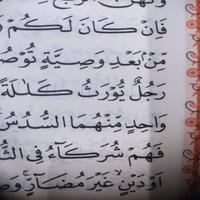 فَإِن كَانَ لَكُمْ وَ
مِّنۢ بَعْدِ وَصِيَّةٍ تُوصُ
رَجُلٌ يُورَثُ كَلَٰلَةً
وَاحِدٍ مِّنْهُمَا السُّدُسُ
فَهُمْ شُرَكَآءُ فِى الثُّ
أَوْ دَيْنٍ غَيْرَ مُضَآرٍّ وَصِ